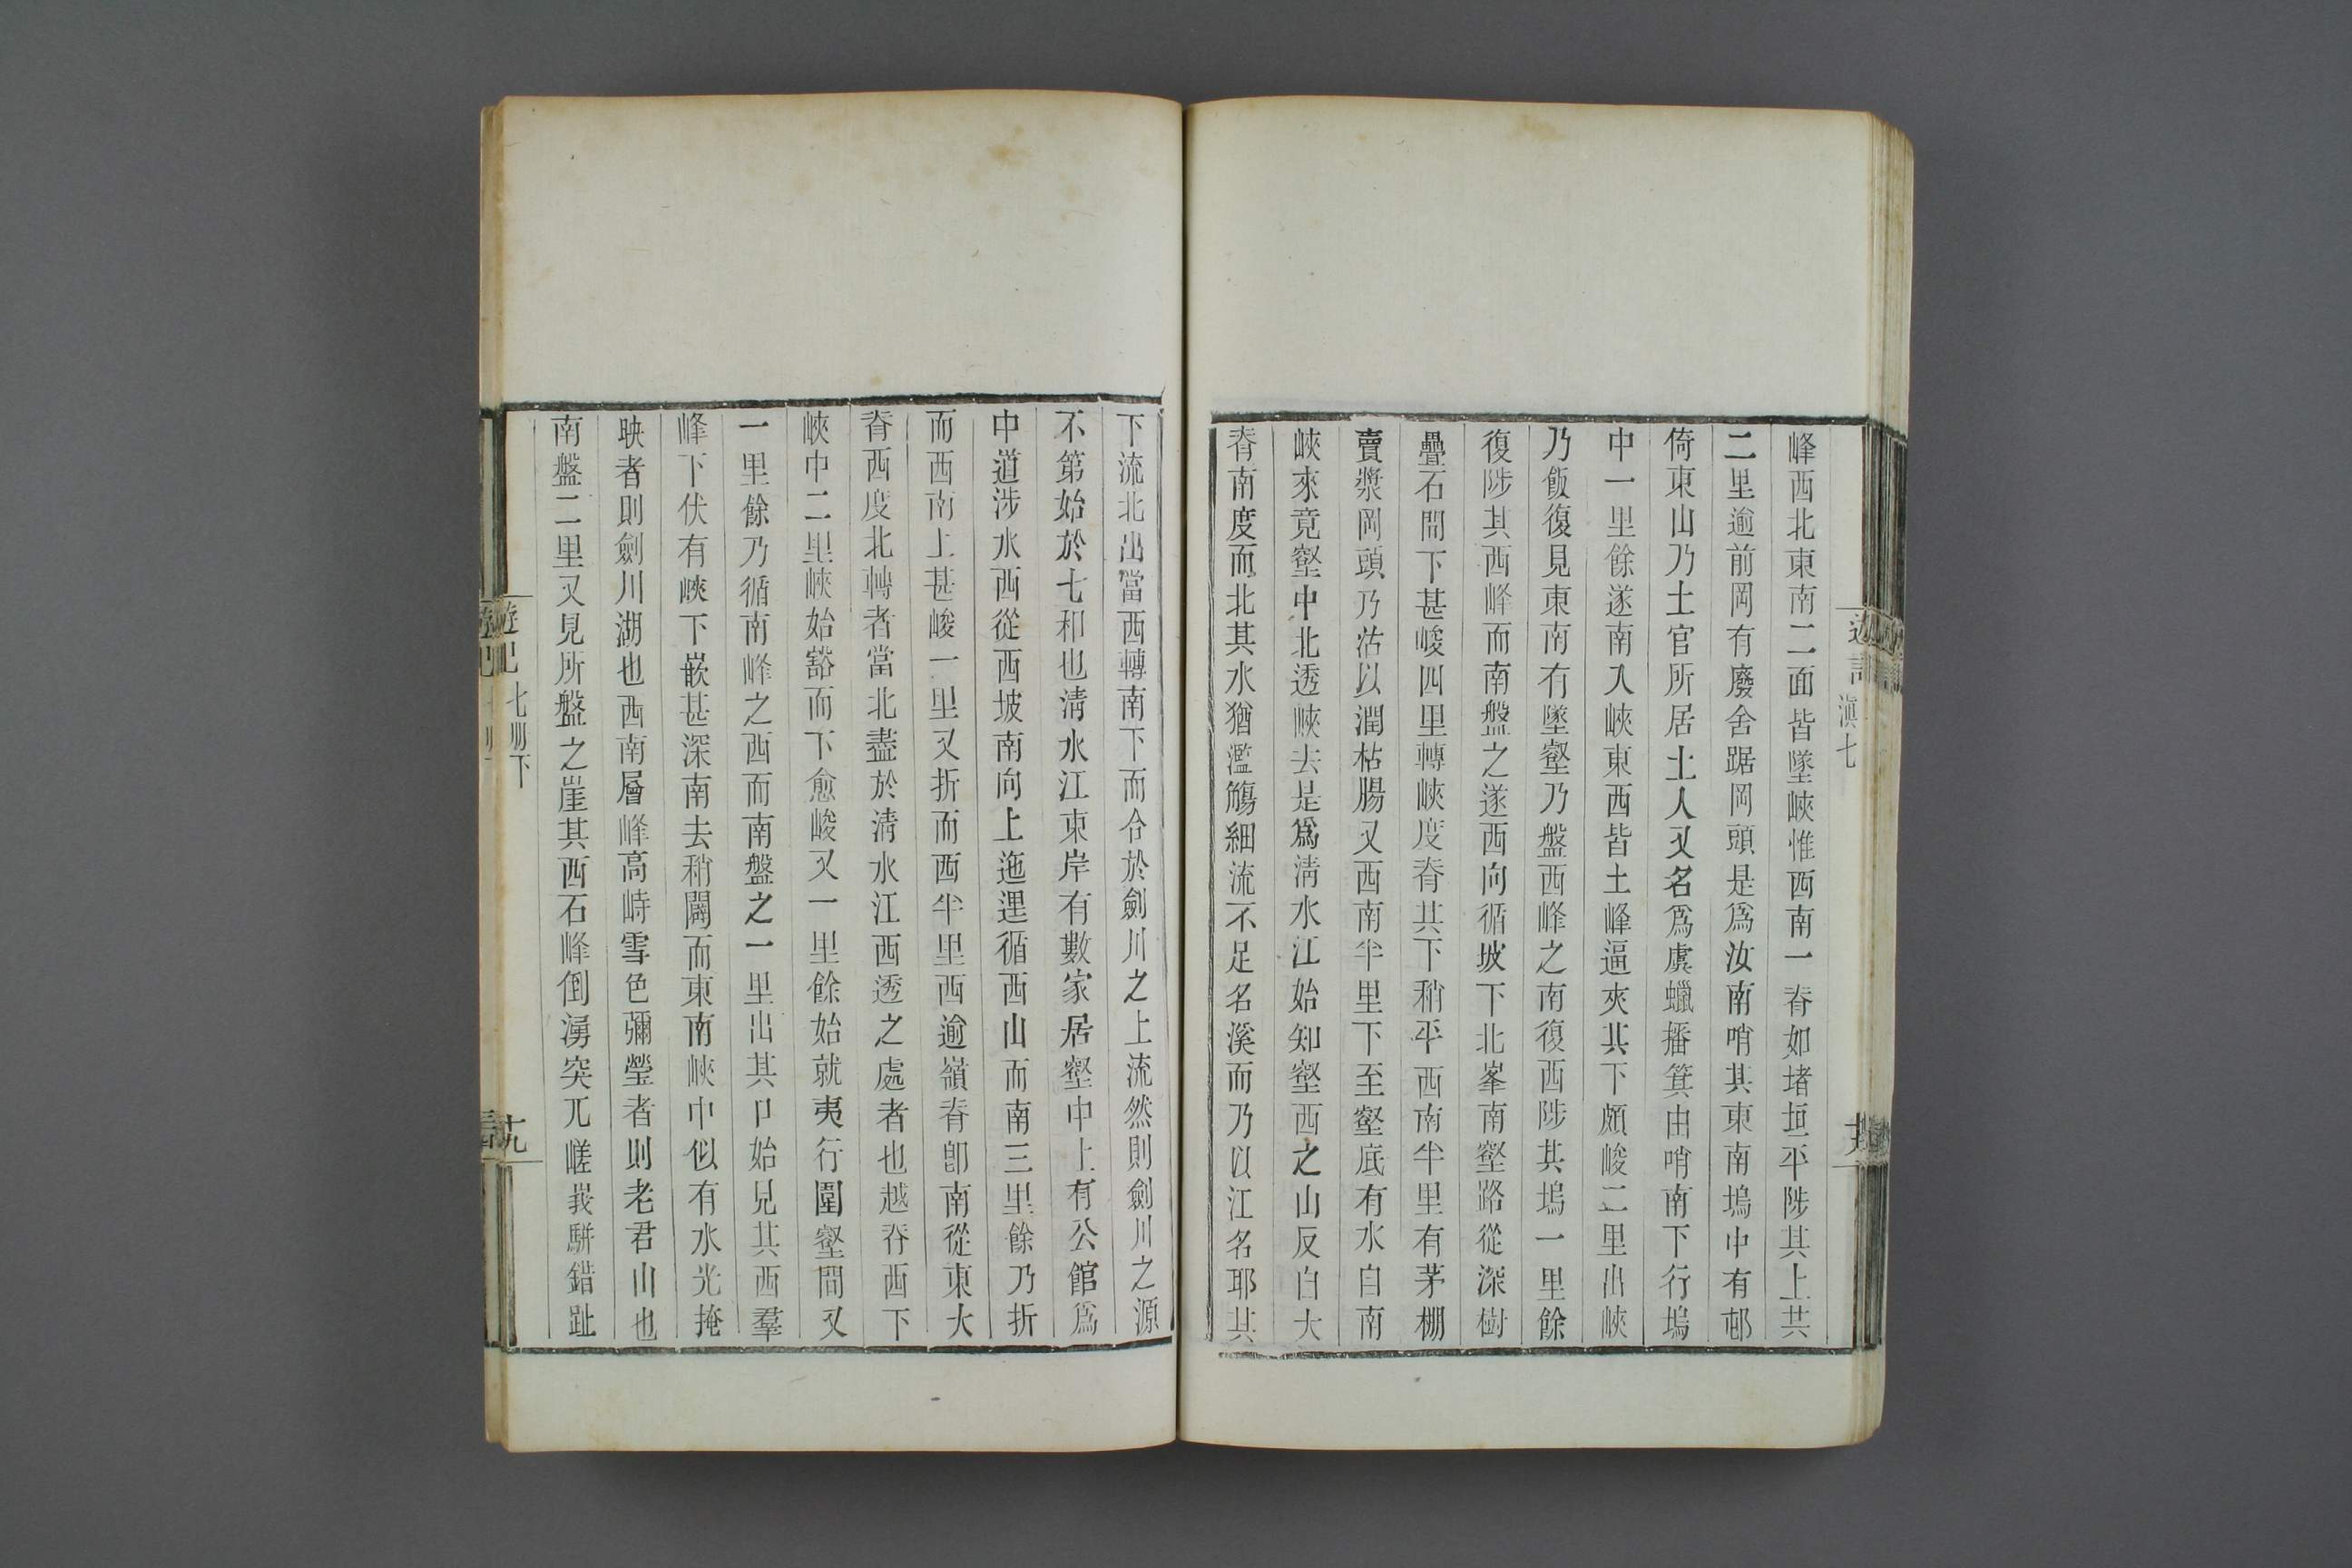 峰西北東南二面皆墜峽惟西南一脊如堵垣平陟其上共
二里逾前岡有廢舍踞岡頭是爲汝南哨其東南塢中有邨
倚東山乃土官所居土人又名爲虞蠟播箕由哨南下行塢
中一里餘遂南入峽東西皆土峰逼夾其下頗峻二里出峽
乃飯復見東南有墜壑乃盤西峰之南復西陟其塢一里餘
復陟其西峰而南盤之遂西向循坡下北峯南壑路從深樹
疊石間下甚峻四里轉峽度脊其下稍平西南半里有茅棚
賣漿岡頭乃沽以潤枯腸又西南半里下至壑底有水自南
峽來竟壑中北透峽去是爲淸水江始知壑西之山反自大
脊南度而北其水猶濫觴細流不足名溪而乃以江名耶其
下流北出當西轉南下而合於劍川之上流然則劍川之源
不第始於七和也淸水江東岸有數家居壑中上有公館爲
中道涉水西從西坡南向上迤逶循西山而南三里餘乃折
而西南上甚峻一里又折而西半里西逾嶺脊卽南從東大
脊西度北轉者當北盡於淸水江西透之處者也越脊西下
峽中二里峽始豁而下愈峻又一里餘始就夷行圍壑間又
一里餘乃循南峰之西而南盤之一里出其口始見其西羣
峰下伏有峽下嵌甚深南去稍闢而東南峽中似有水光掩
映者則劍川湖也西南層峰高峙雪色彌瑩者則老君山也
南盤二里又見所盤之崖其西石峰倒湧突兀嵯峩騈錯趾
遊記 七册下 十九
滇七